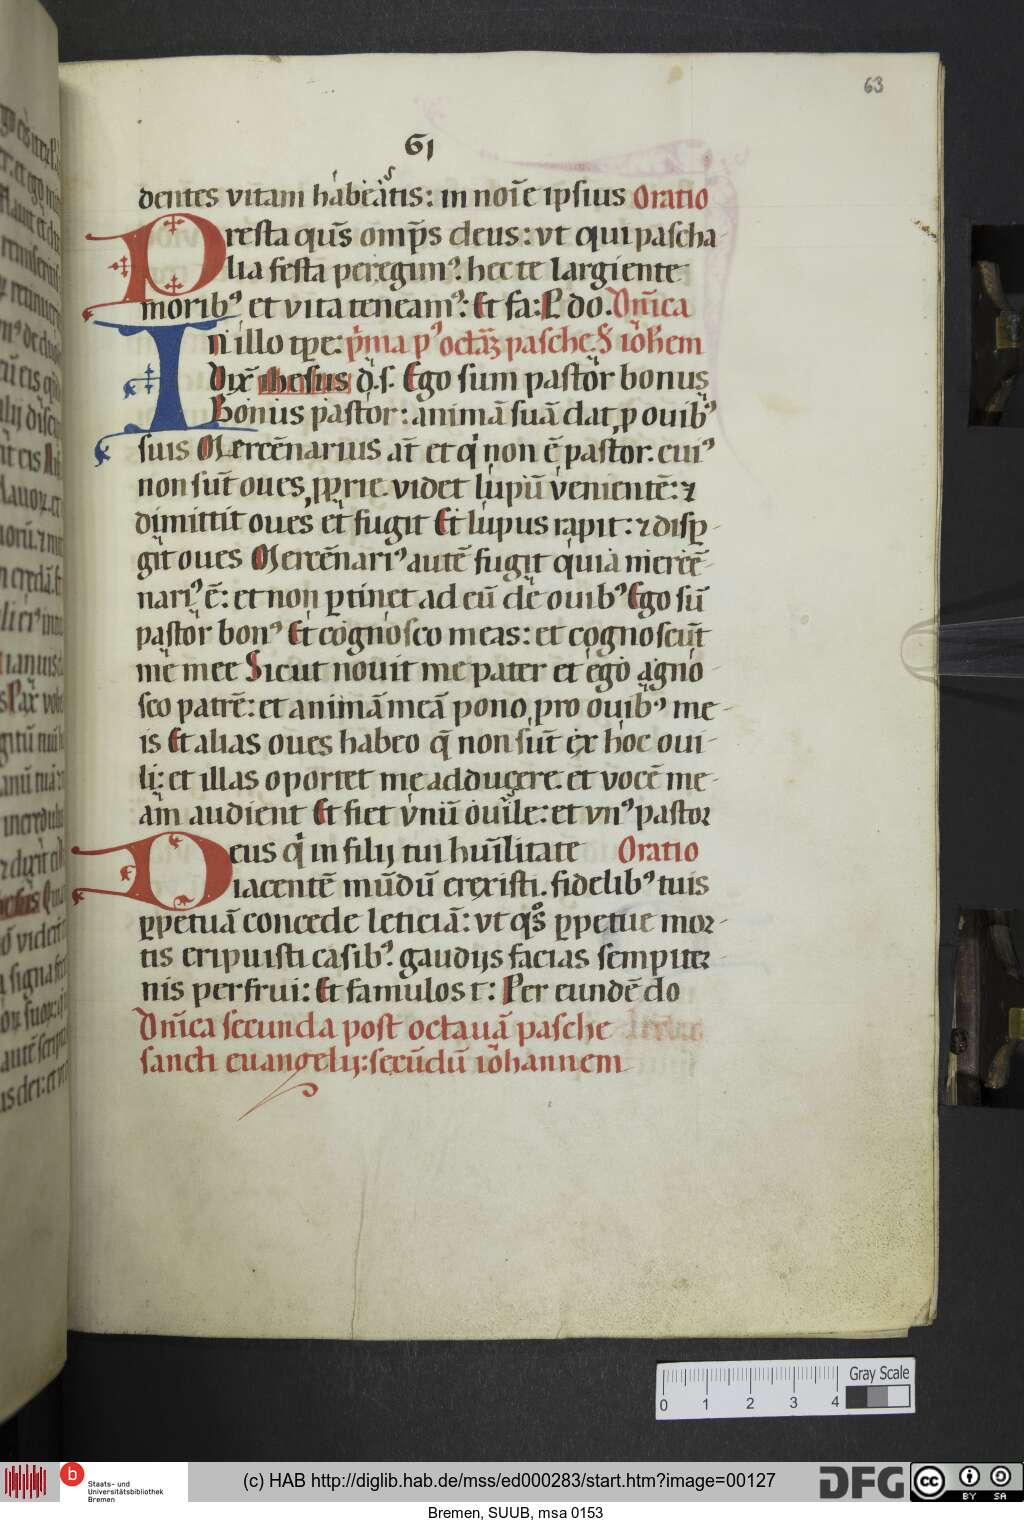 63
61
dentes vitam habeatis: in noīe ipsius Oratio
Presta qus̄ omp̄s deus: vt qui pascha
lia festa peregimꝰ. hec te largiente
moribꝰ et vita teneamꝰ: Et fa: P do. Dn̄ica
In illo tp̄e: p̄ma pꝰ octaꝫ pasche. S ioh̄em
Dix̄ ihesus d. s. Ego sum pastor bonus
Bonus pastor: animā suā dat ꝓ ouibꝰ
suis Mercēnarius at̄ et q̇ non ē pastor. cuiꝰ
non sūt oues ꝓprie. videt lupū venientē: ⁊
dimittit oues et fugit Et lupus rapit: ⁊ disꝑ-
git oues Mercēnariꝰ autē fugit quia mercē-
nariꝰ ē: et non ꝑtinet ad eū de ouibꝰ Ego sū
pastor bonꝰ Et cognosco meas: et cognoscūt
me mee Sicut nouit me pater et ego agno-
sco patrē: et animā meā pono pro ouibꝰ me-
is Et alias oues habeo q̄ non sūt ex hoc oui-
li: et illas oportet me adducere. et vocē me-
am audient Et fiet vnū ouile: et vnꝰ pastor
Deus q̇ in filij tui hūilitate Oratio
iacentē mūdū erexisti. fidelibꝰ tuis
ꝑpetuā concede leticiā: vt qͦs ꝑpetue mor-
tis eripuisti casibꝰ. gaudijs facias sempiter-
nis perfrui: Et famulos t: Per eundē do
Dn̄ica secunda post octauā pasche
sancti euangelij: secūdū iohannem
Gray Scale
0 1 2 3 4
b
Staats- und
Universitätsbibliothek
Bremen
(c) HAB http://diglib.hab.de/mss/ed000283/start.htm?image=00127
DFG
cc
BY SA
Bremen, SUUB, msa 0153